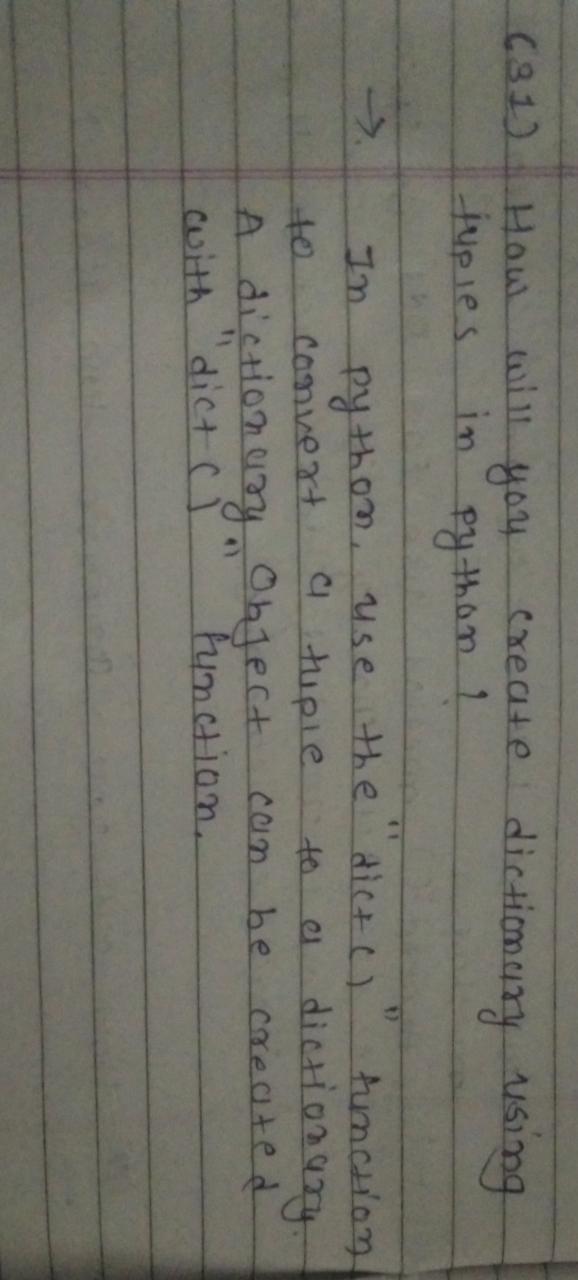 (31) How will you create dictionary using
tuples in python ?
→. In python, use the "dict()" function
to convert a tuple to a dictionary.
A dictionary Object can be created
with "dict()" function.